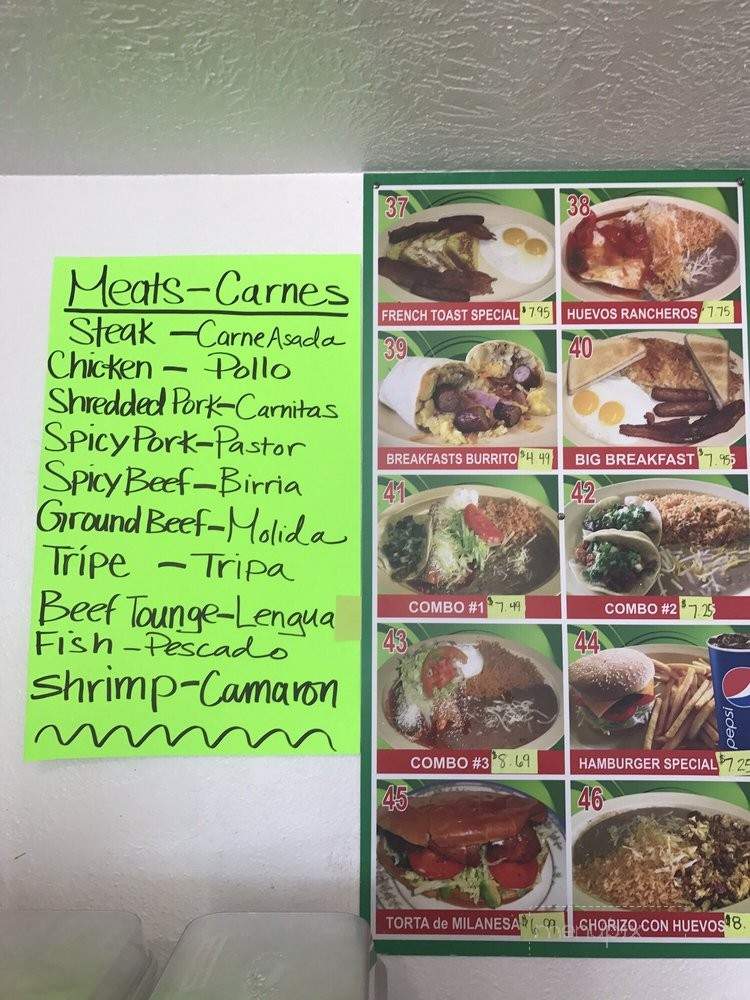 Meats-Carnes
Steak - Carne Asada
Chicken - Pollo
Shredded Pork-Carnitas
Spicy Pork-Pastor
Spicy Beef-Birria
Ground Beef-Molida
Tripe - Tripa
Beef Tounge-Lengua
Fish-Pescado
Shrimp-Camaron
37
FRENCH TOAST SPECIAL $7.95
38
HUEVOS RANCHEROS 7.75
39
BREAKFASTS BURRITO $4.49
40
BIG BREAKFAST $7.95
41
COMBO #1 $7.49
42
COMBO #2 $7.25
43
COMBO #3 $8.69
44
pepsi
HAMBURGER SPECIAL $7.25
45
TORTA de MILANESA $6.99
46
CHORIZO CON HUEVOS $8.
menupix